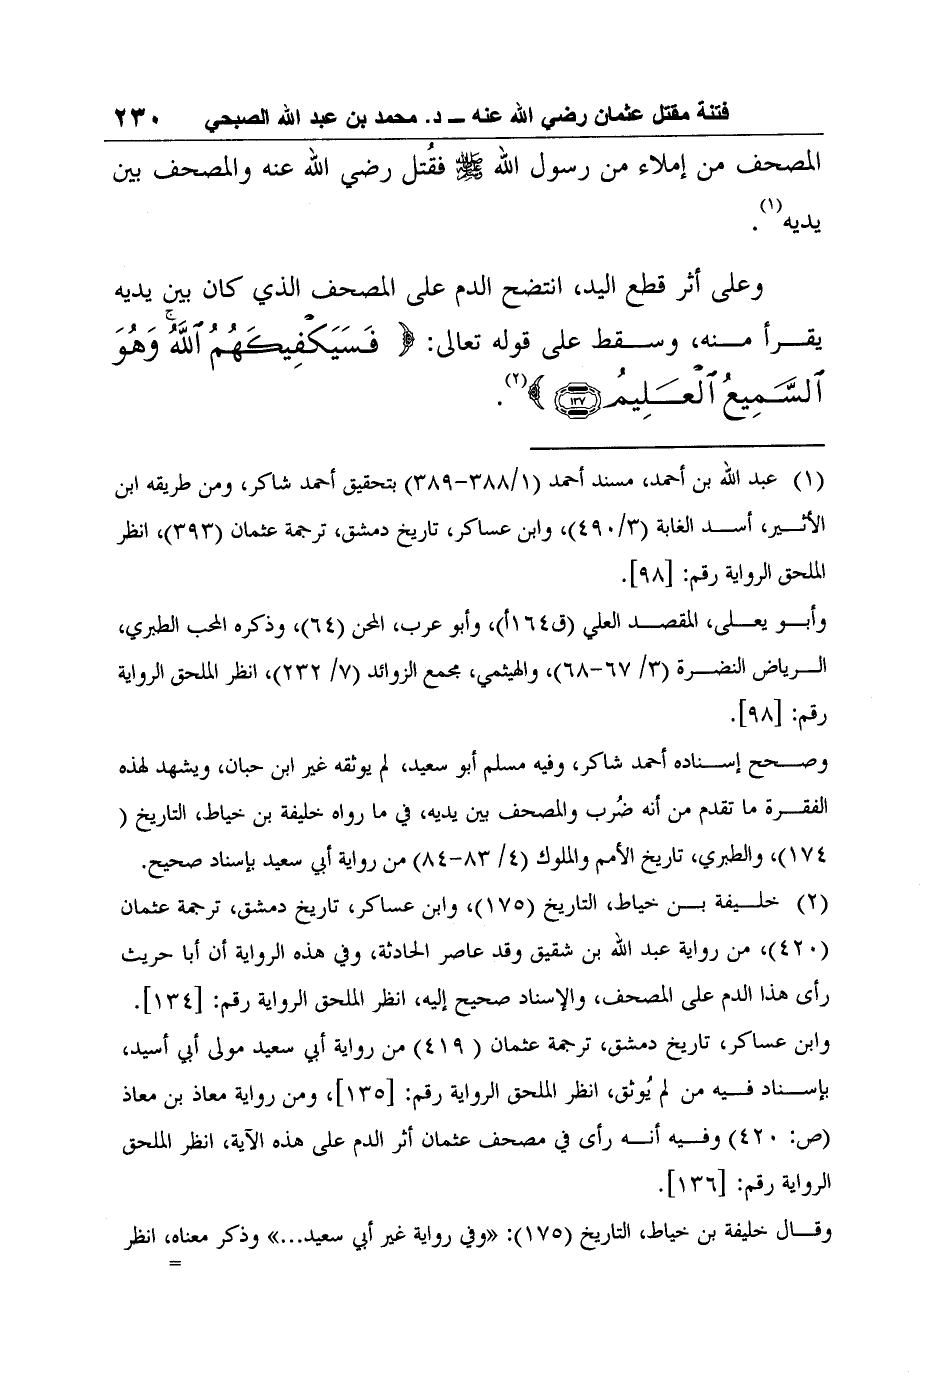 فتنة مقتل عثمان رضي الله عنه ــ د. محمد بن عبد الله الصبحي ٢٣٠
المصحف من إملاء من رسول الله ﷺ فقُتل رضي الله عنه والمصحف بين
يديه(١).
وعلى أثر قطع اليد، انتضح الدم على المصحف الذي كان بين يديه
يقرأ منه، وسقط على قوله تعالى: ﴿ فَسَيَكْفِيكَهُمُ ٱللَّهُۚ وَهُوَ
ٱلسَّمِيعُ ٱلْعَلِيمُ ١٣٧ ﴾(٢).
(١) عبد الله بن أحمد، مسند أحمد (٣٨٨/١-٣٨٩) بتحقيق أحمد شاكر، ومن طريقه ابن
الأثير، أسد الغابة (٤٩٠/٣)، وابن عساكر، تاريخ دمشق، ترجمة عثمان (٣٩٣)، انظر
الملحق الرواية رقم: [٩٨].
وأبو يعلى، المقصد العلي (ق١٦٤أ)، وأبو عرب، المحن (٦٤)، وذكره المحب الطبري،
الرياض النضرة (٣/ ٦٧-٦٨)، والهيثمي، مجمع الزوائد (٧/ ٢٣٢)، انظر الملحق الرواية
رقم: [٩٨].
وصحح إسناده أحمد شاكر، وفيه مسلم أبو سعيد، لم يوثقه غير ابن حبان، ويشهد لهذه
الفقرة ما تقدم من أنه ضُرب والمصحف بين يديه، في ما رواه خليفة بن خياط، التاريخ (
١٧٤)، والطبري، تاريخ الأمم والملوك (٤/ ٨٣-٨٤) من رواية أبي سعيد بإسناد صحيح.
(٢) خليفة بن خياط، التاريخ (١٧٥)، وابن عساكر، تاريخ دمشق، ترجمة عثمان
(٤٢٠)، من رواية عبد الله بن شقيق وقد عاصر الحادثة، وفي هذه الرواية أن أبا حريث
رأى هذا الدم على المصحف، والإسناد صحيح إليه، انظر الملحق الرواية رقم: [١٣٤].
وابن عساكر، تاريخ دمشق، ترجمة عثمان ( ٤١٩) من رواية أبي سعيد مولى أبي أسيد،
بإسناد فيه من لم يُوثق، انظر الملحق الرواية رقم: [١٣٥]، ومن رواية معاذ بن معاذ
(ص: ٤٢٠) وفيه أنه رأى في مصحف عثمان أثر الدم على هذه الآية، انظر الملحق
الرواية رقم: [١٣٦].
وقال خليفة بن خياط، التاريخ (١٧٥): «وفي رواية غير أبي سعيد...» وذكر معناه، انظر
=